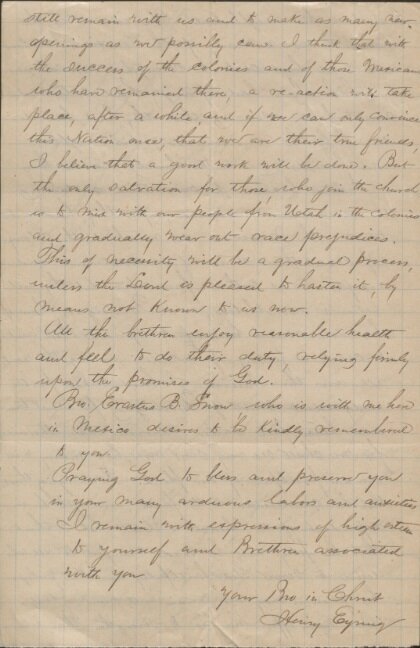 still remain with us and to make as many new
openings as we possibly can. I think that with
the success of the colonies and of those Mexicans
who have remained there, a re-action will take
place, after a while and if we can only convince
this Nation once, that we are their true friends,
I believe that a good work will be done. But
the only salvation for those, who join the church
is to mix with our people from Utah in the colonies
and gradually wear out race prejudices.
This of necessity will be a gradual process,
unless the Lord is pleased to hasten it, by
means not known to us now.
All the brethren enjoy reasonable health
and feel to do their duty, relying firmly
upon the promises of God.
Bro. Erastus B. Snow who is with me here
in Mexico desires to be kindly remembered
to you.
Praying God to bless and preserve you
in your many arduous labors and anxieties
I remain with expressions of high esteem
to yourself and Brethren associated
with you
Your Bro in Christ
Henry Eyring